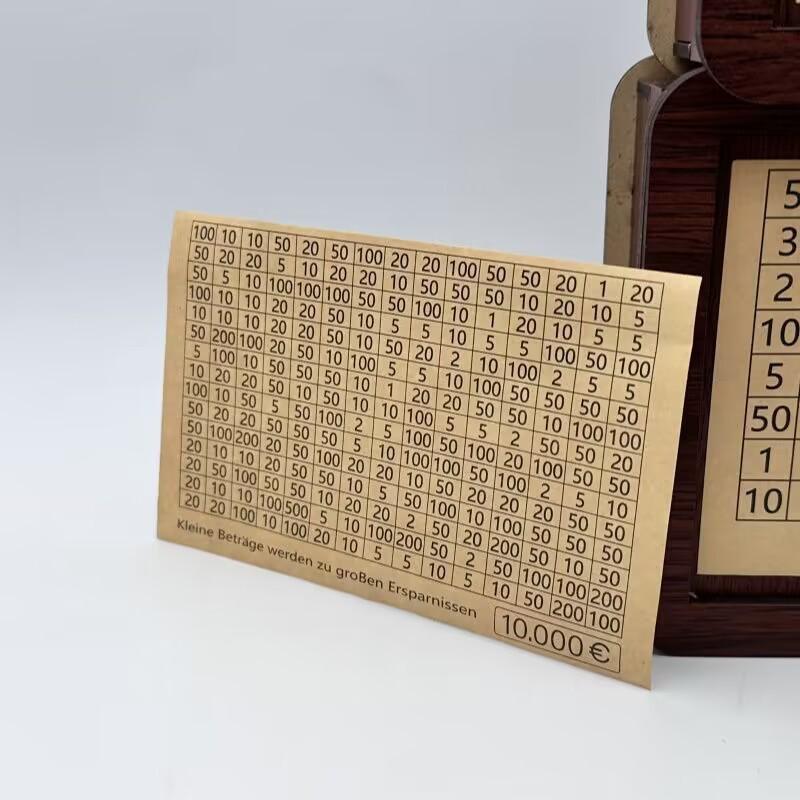 100 10 10 50 20 50 100 20 20 100 50 50 20 1 20
50 20 20 5 10 20 20 10 50 50 50 10 20 10 5
50 5 10 100 100 100 50 50 100 10 1 20 10 5 5
100 10 10 20 20 50 10 5 5 10 5 5 100 50 100
10 10 10 20 20 50 10 50 20 2 10 100 2 5 5
50 200 100 20 50 10 100 5 5 10 100 50 50 50 50
5 100 10 50 50 50 10 1 20 20 50 50 10 100 100
10 20 20 50 10 50 10 10 100 5 5 2 50 50 20
100 10 50 5 50 100 2 5 100 50 100 20 100 50 50
50 20 20 50 50 50 5 10 100 100 50 100 2 5 10
50 100 200 20 50 100 20 20 10 50 20 20 20 50 50
20 10 10 20 50 50 10 5 50 100 10 50 50 50 50
20 50 10 50 50 10 20 20 2 50 20 200 50 10 50
20 10 10 100 500 5 10 100 200 50 2 50 100 100 200
20 20 100 10 100 20 10 5 5 10 5 10 50 200 100
Kleine Beträge werden zu großen Ersparnissen
10.000 €
5
3
2
10
5
50
1
10